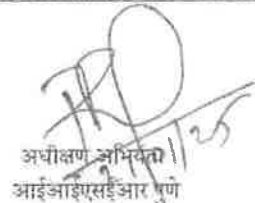 अधीक्षण अभियंता
आईआईएसईआर पुणे